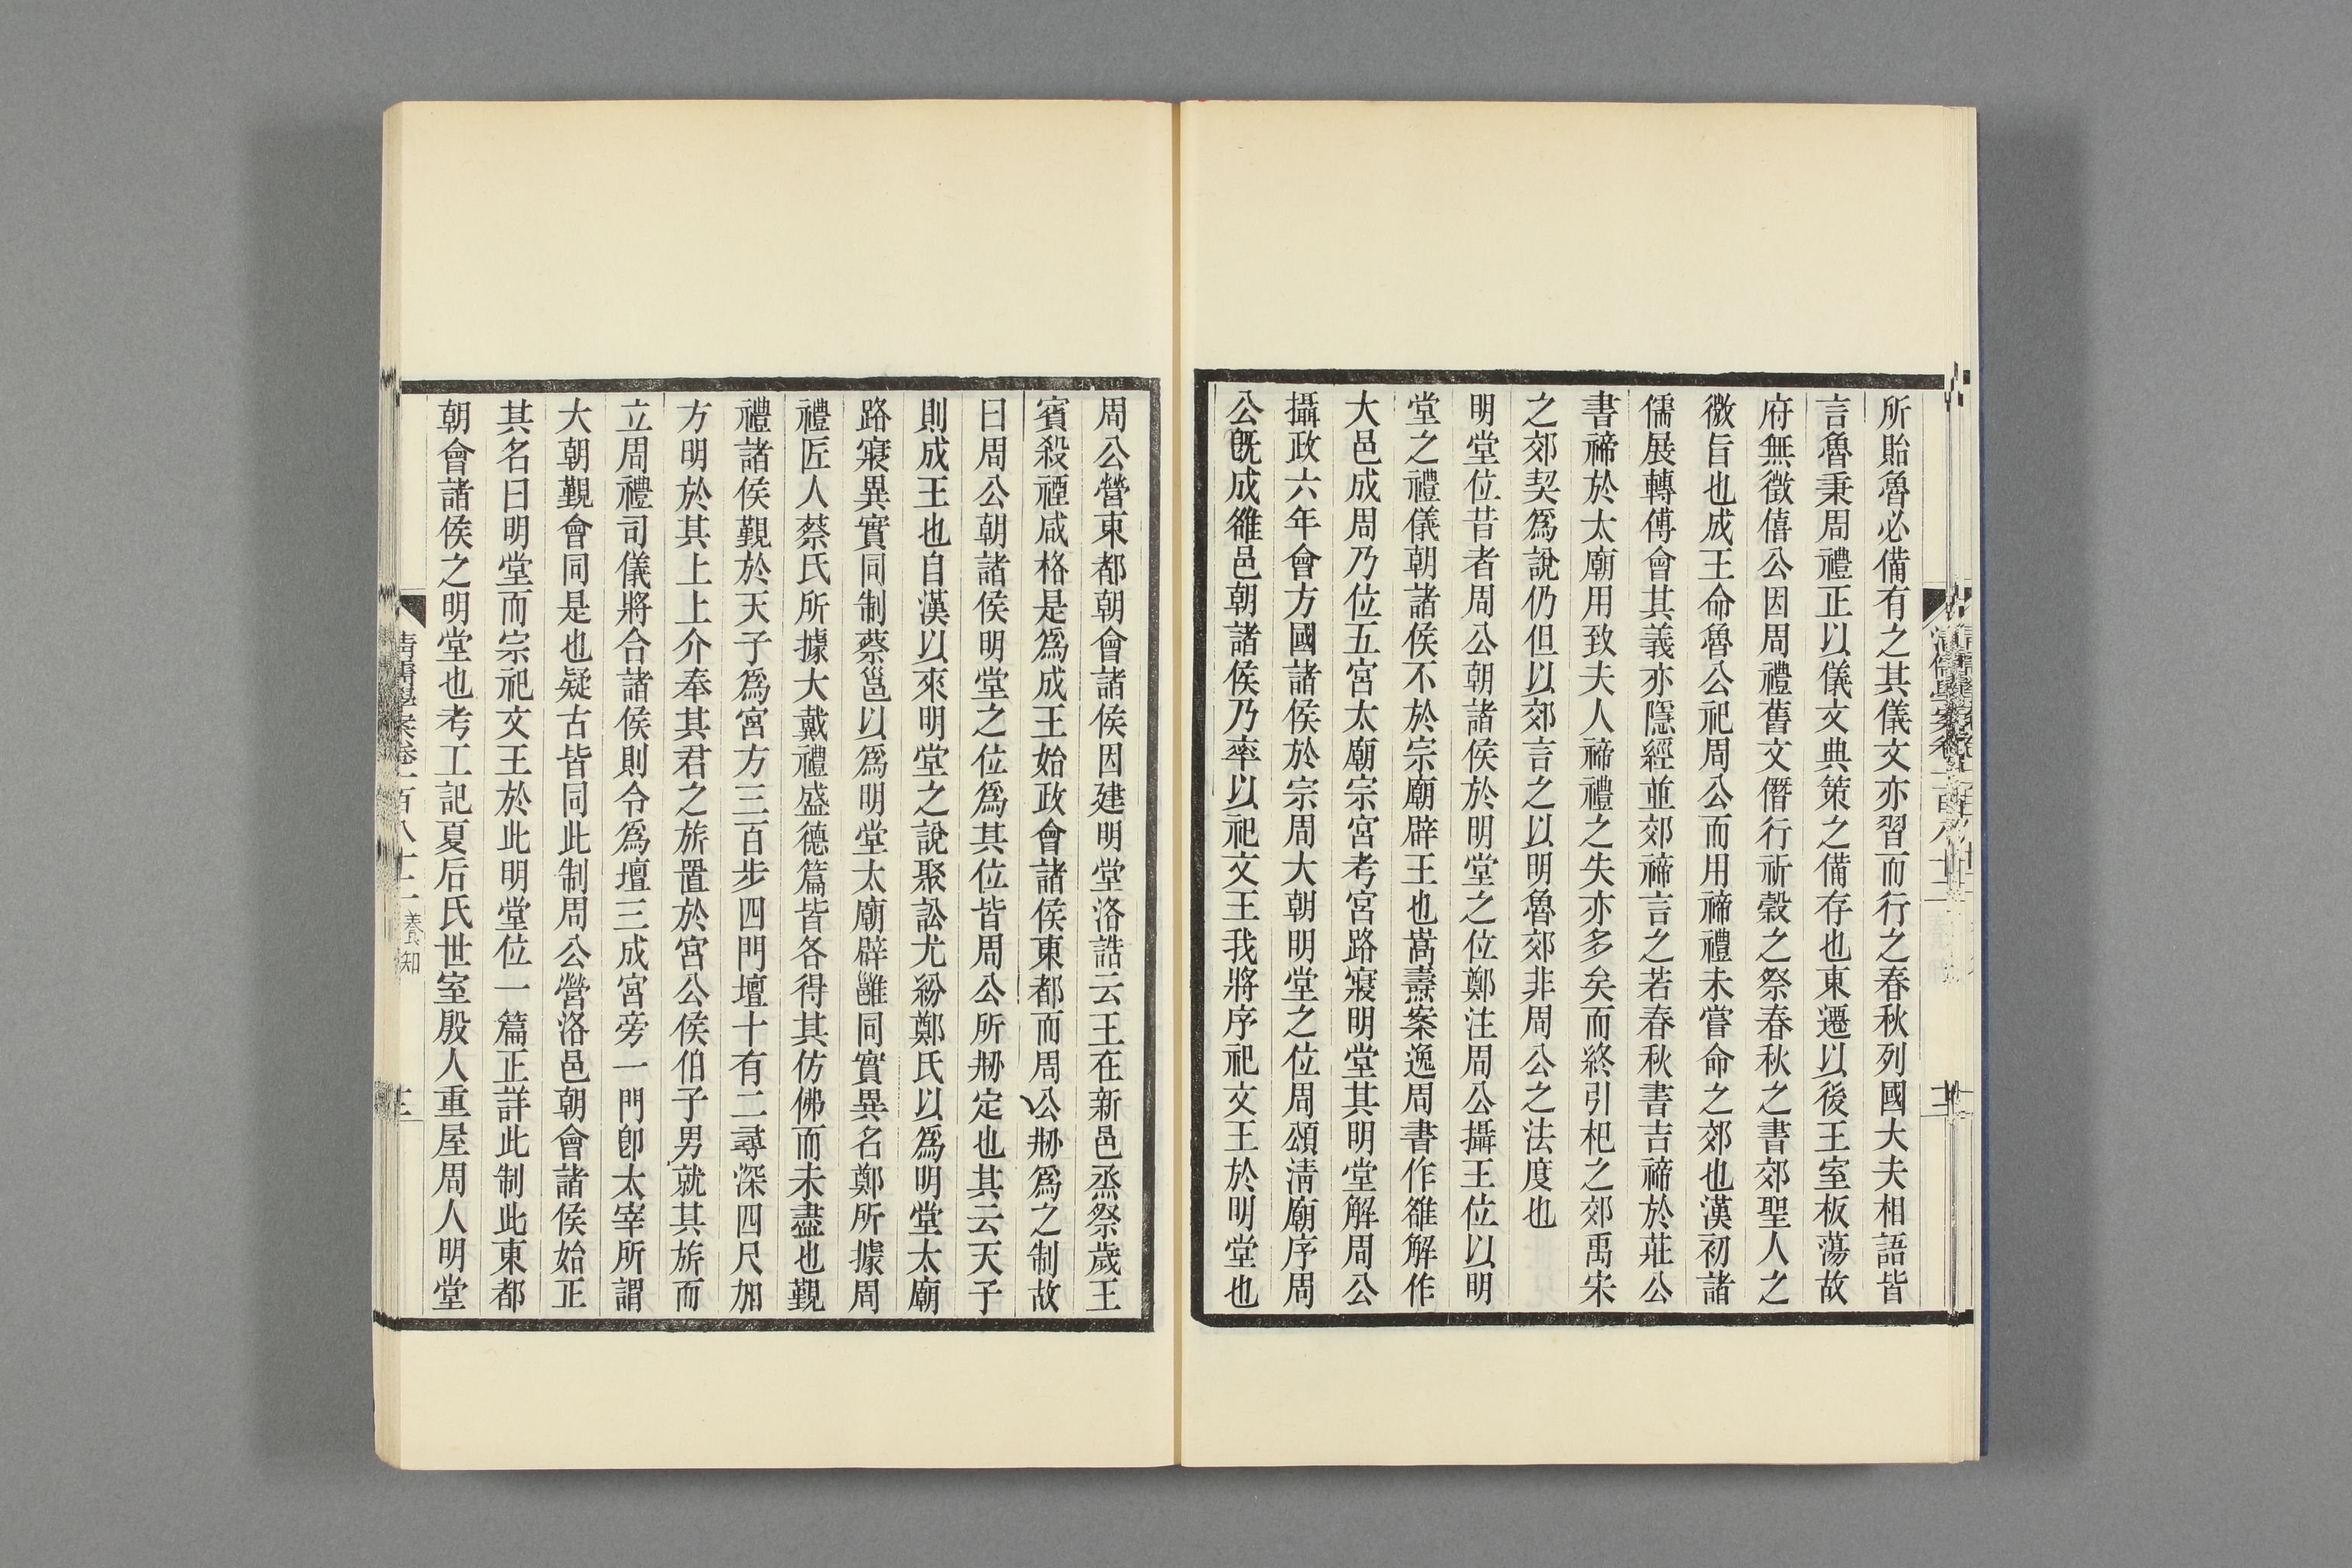 所貽魯必備有之其儀文亦習而行之春秋列國大夫相語皆
言魯秉周禮正以儀文典策之備存也東遷以後王室板蕩故
府無徵僖公因周禮舊文僭行祈穀之祭春秋之書郊聖人之
微旨也成王命魯公祀周公而用禘禮未嘗命之郊也漢初諸
儒展轉傅會其義亦隱經並郊禘言之若春秋書吉禘於莊公
書禘於太廟用致夫人禘禮之失亦多矣而終引杞之郊禹宋
之郊契爲說仍但以郊言之以明魯郊非周公之法度也
明堂位昔者周公朝諸侯於明堂之位鄭注周公攝王位以明
堂之禮儀朝諸侯不於宗廟辟王也嵩燾案逸周書作雒解作
大邑成周乃位五宮太廟宗宮考宮路寢明堂其明堂解周公
攝政六年會方國諸侯於宗周大朝明堂之位周頌淸廟序周
公旣成雒邑朝諸侯乃率以祀文王我將序祀文王於明堂也
周公營東都朝會諸侯因建明堂洛誥云王在新邑烝祭歲王
賓殺禋咸格是爲成王始政會諸侯東都而周公剏爲之制故
曰周公朝諸侯明堂之位爲其位皆周公所剏定也其云天子
則成王也自漢以來明堂之說聚訟尤紛鄭氏以爲明堂太廟
路寢異實同制蔡邕以爲明堂太廟辟雝同實異名鄭所據周
禮匠人蔡氏所據大戴禮盛德篇皆各得其仿佛而未盡也覲
禮諸侯覲於天子爲宮方三百步四門壇十有二尋深四尺加
方明於其上上介奉其君之旂置於宮公侯伯子男就其旂而
立周禮司儀將合諸侯則令爲壇三成宮旁一門卽太宰所謂
大朝覲會同是也疑古皆同此制周公營洛邑朝會諸侯始正
其名曰明堂而宗祀文王於此明堂位一篇正詳此制此東都
朝會諸侯之明堂也考工記夏后氏世室殷人重屋周人明堂
淸儒學案卷一百八十二 養知